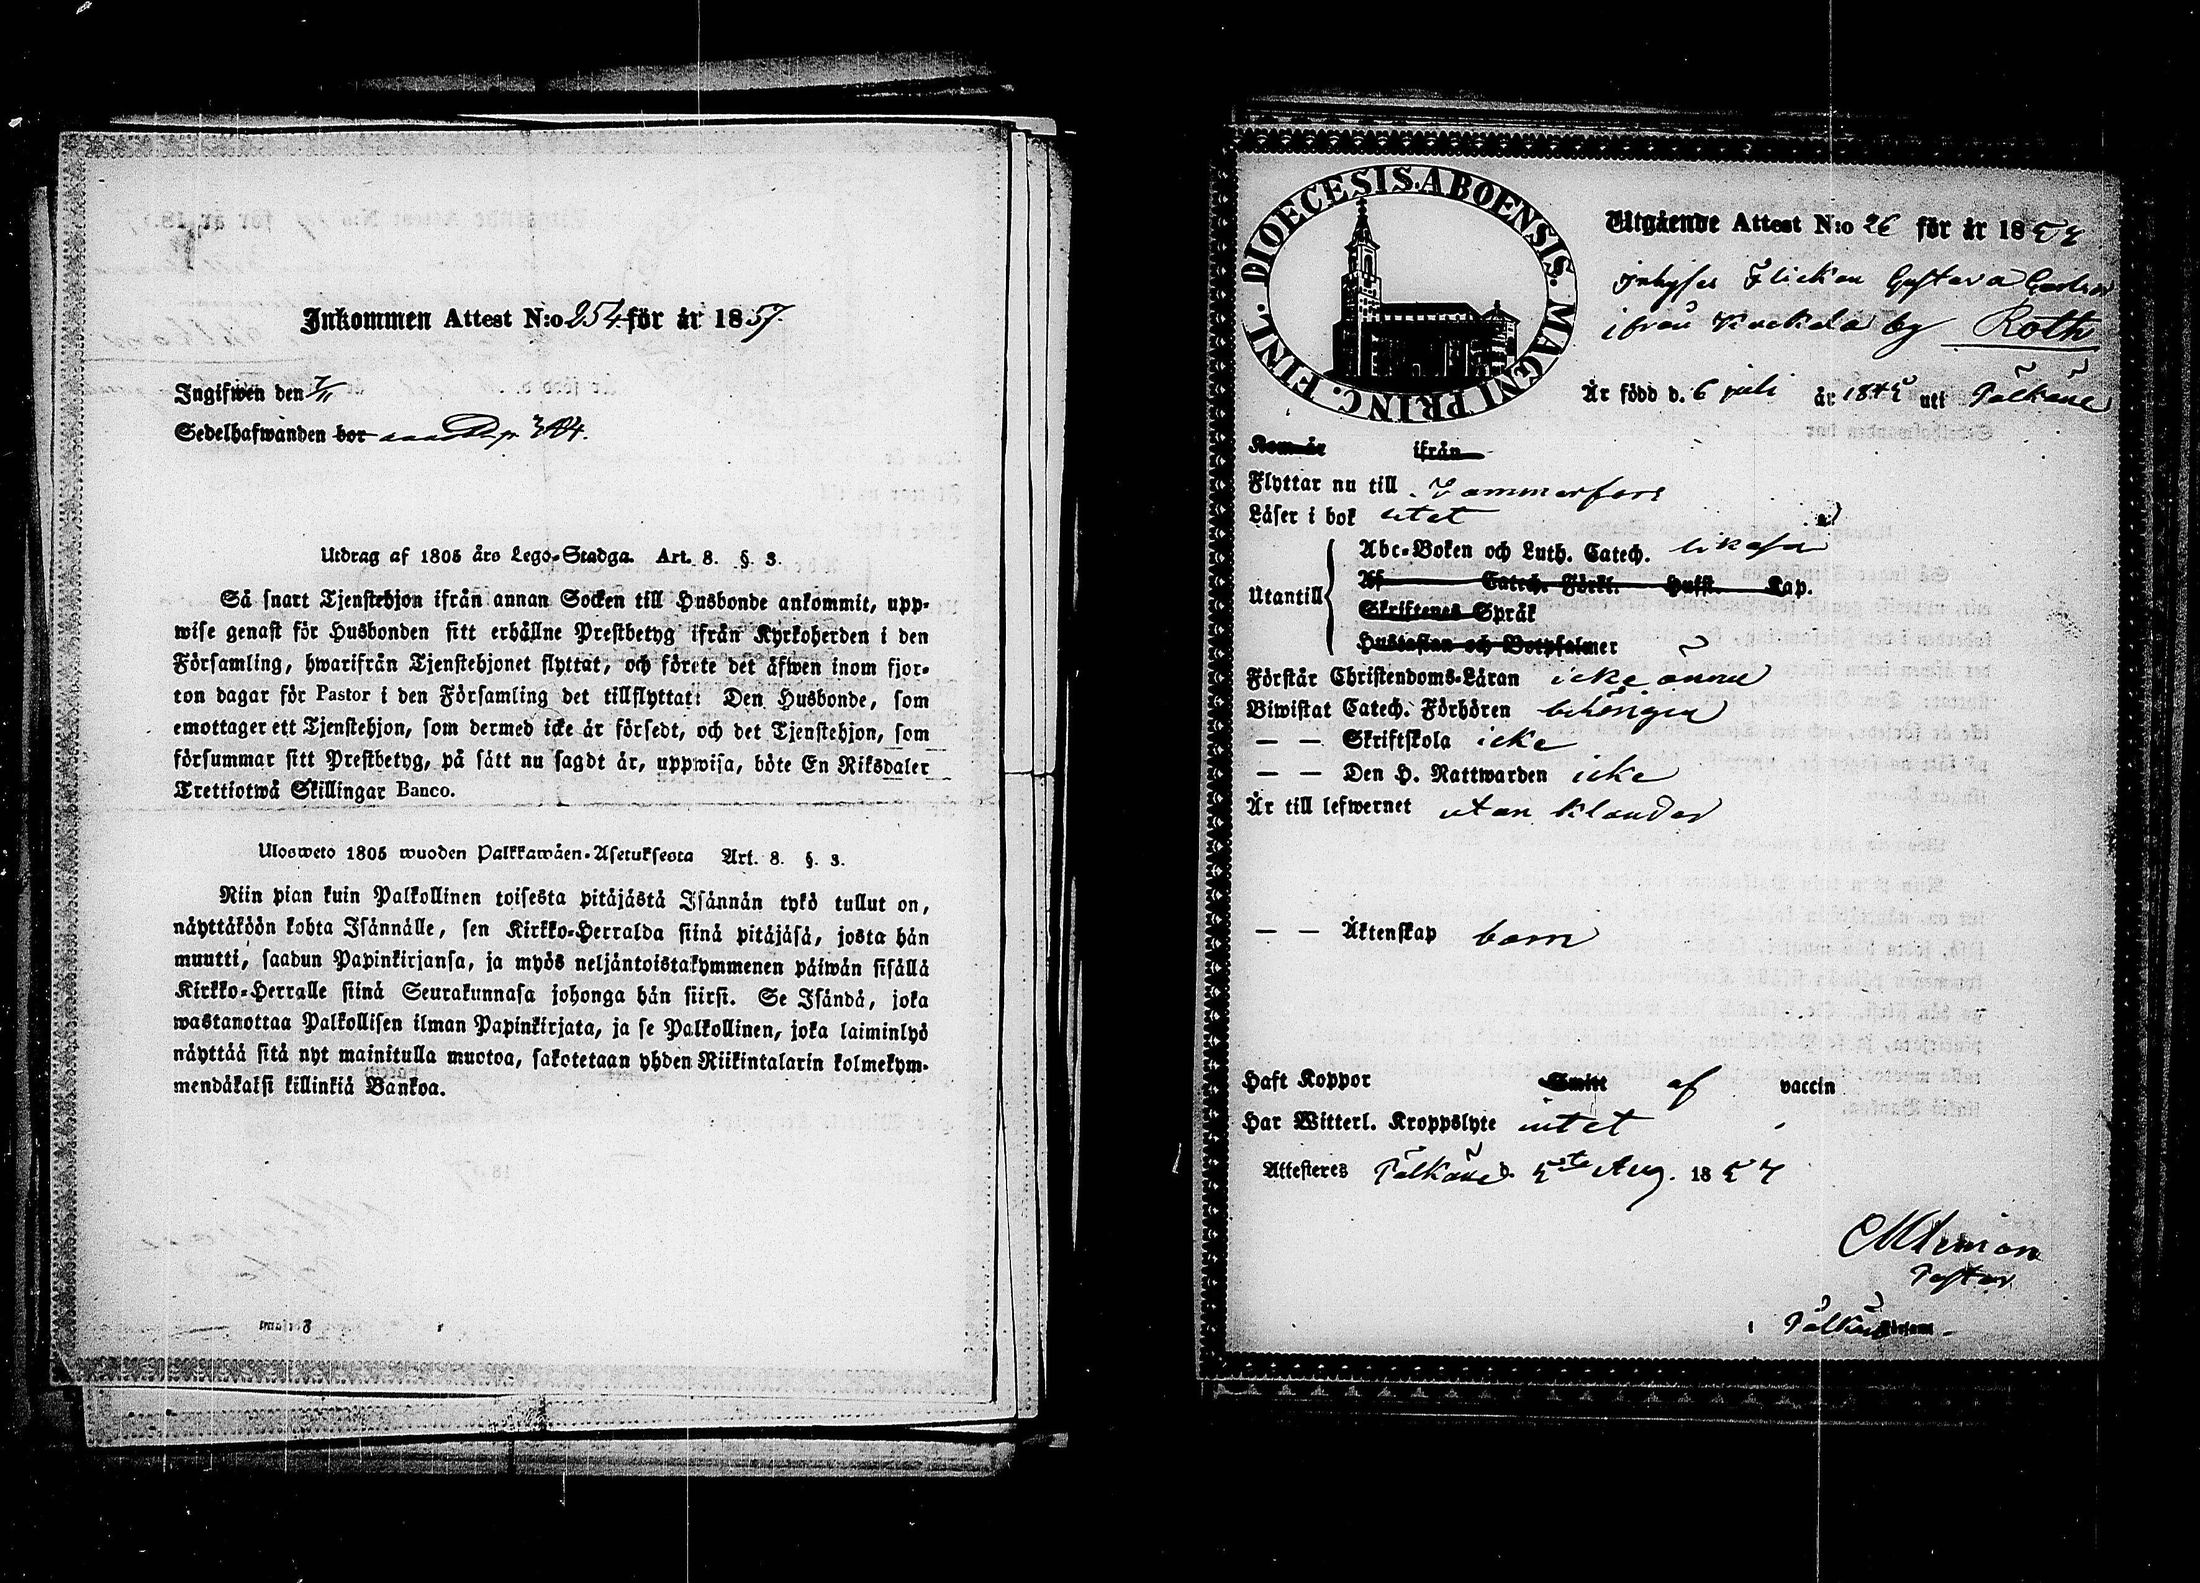 Inkommen Attest N:o 254 för år 1857.
Ingifwen den 7/11
Sedelhafwanden bor
Utdrag af 1805 års Lego-Stadga. Art. 8. §. 3.
Så snart Tjenstehjon ifrån annan Socken till Husbonde ankommit, upp-
wise genast för Husbonden sitt erhållne Prestbetyg ifrån Kyrkoherden i den
Församling, hwarifrån Tjenstehjonet flyttat, och förete det äfwen inom fjor-
ton dagar för Pastor i den Församling det tillflyttat: Den Husbonde, som
emottager ett Tjenstehjon, som dermed icke är försedt, och det Tjenstehjon, som
försummar sitt Prestbetyg, på sätt nu sagdt är, uppwisa, böte En Riksdaler
Trettiotwå Skillingar Banco.
Ulosweto 1805 wuoden Palkkawäen-Asetuksesta Art. 8. §. 3.
Niin pian kuin Palkollinen toisesta pitäjästä Isännän tykö tullut on,
näyttäköön kohta Isännälle, sen Kirkko-Herralda siinä pitäjäsä, josta hän
muutti, saadun Papinkirjansa, ja myös neljäntoistakymmenen päiwän sisällä
Kirkko-Herralle siinä Seurakunnasa johonga hän siirsi. Se Isändä, joka
wastanottaa Palkollisen ilman Papinkirjata, ja se Palkollinen, joka laiminlyö
näyttää sitä nyt mainitulla muotoa, sakotetaan yhden Riikintalarin kolmekym-
mendäkaksi killinkiä Bankoa.
DIOECESIS. ABOENSIS. MAGNI PRINC. FINL.
Utgående Attest N:o 26 för år 1857
Inhyses Flickan Gustava
ifrån Kuckola by Roth
Är född d. 6 juli år 184 uti Pälkäne
Kom år ifrån
Flyttar nu till Tammerfors
Läser i bok utat
Utantill
Abc-Boken och Luth. Catech. likaså
Af Catech. Förkl. Hufst. Kap.
Skriftenes Språk
Hustaflan och Botpsalmer
Förstår Christendoms-Läran icke ännu
Biwistat Catech. Förhören behörigen
— — Skriftskola icke
— — Den H. Nattwarden icke
Är till lefwernet utan klander
— — Äktenskap barn
Haft Koppor Smitt af vaccin
Har Witterl. Kroppslyte intet
Attesteres Pälkäne d. 5te Aug. 1857
Pastor
i Pälkäne Försam